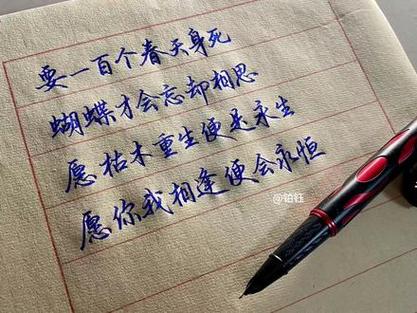 要一百个春天身死
蝴蝶才会忘却相思
愿枯木重生便是永生
愿你我相逢便会永恒
@铂钰